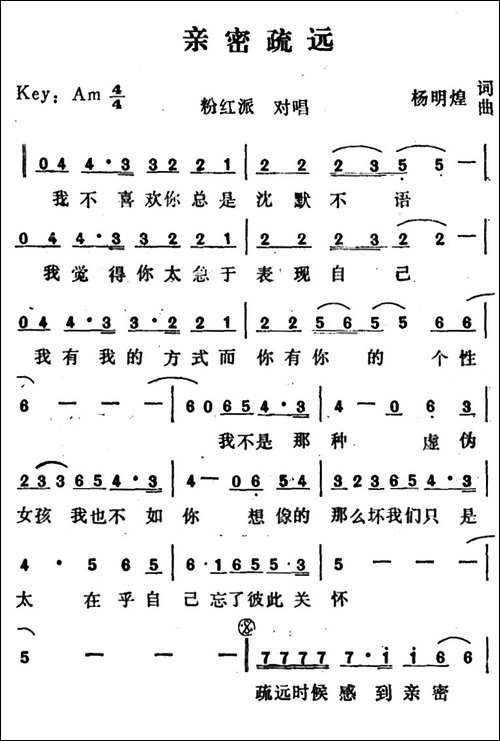 亲密疏远
Key: Am 4/4
粉红派 对唱
杨明煌 词曲
| 0 4 4 · 3 3 2 2 2 1 | 2 2 2 2 3 5 5 — |
我不喜欢你总是沈默不语
0 4 4 · 3 3 2 2 2 1 | 2 2 2 2 3 2 2 — |
我觉得你太急于表现自己
0 4 4 · 3 3 · 2 2 1 | 2 2 5 6 5 5 6 6 |
我有我的方式而你有你的个性
6 — — — | 6 0 6 5 4 · 3 | 4 — 0 6 3 |
我不是那种虚伪
2 3 3 6 5 4 · 3 | 4 — 0 6 5 4 | 3 2 3 6 5 4 · 3 |
女孩我也不如你想像的那么坏我们只是
4 · 5 6 5 | 6 · 1 6 5 5 · 3 | 5 — — — |
太在乎自己忘了彼此关怀
5 — — — | 7 7 7 7 7 · i i 6 6 |
疏远时候感到亲密